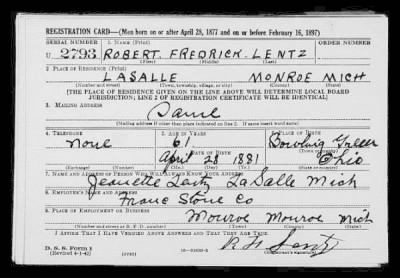 REGISTRATION CARD—(Men born on or after April 28, 1877 and on or before February 16, 1897)
SERIAL NUMBER 1. NAME (Print)
U 2793 ROBERT. FREDRICK. LENTZ
(First) (Middle) (Last)
2. PLACE OF RESIDENCE (Print)
LASALLE MONROE MICH
(Number and street) (Town, township, village, or city) (County) (State)
[THE PLACE OF RESIDENCE GIVEN ON THE LINE ABOVE WILL DETERMINE LOCAL BOARD
JURISDICTION; LINE 2 OF REGISTRATION CERTIFICATE WILL BE IDENTICAL]
3. MAILING ADDRESS
Same
[Mailing address if other than place indicated on line 2. If same insert word same]
4. TELEPHONE 5. AGE IN YEARS 6. PLACE OF BIRTH
None 61 Bowling Green
DATE OF BIRTH
April 28 1881 Ohio
(Exchange) (Number) (Mo.) (Day) (Yr.) (State or country)
7. NAME AND ADDRESS OF PERSON WHO WILL ALWAYS KNOW YOUR ADDRESS
Jeanette Lentz LaSalle Mich
8. EMPLOYER'S NAME AND ADDRESS
France Stone Co
9. PLACE OF EMPLOYMENT OR BUSINESS
Monroe Monroe Mich
(Number and street or R. F. D. number) (Town) (County) (State)
I AFFIRM THAT I HAVE VERIFIED ABOVE ANSWERS AND THAT THEY ARE TRUE.
D. S. S. Form 1
(Revised 4-1-42) (over)
R F Lentz
(Registrant's signature)